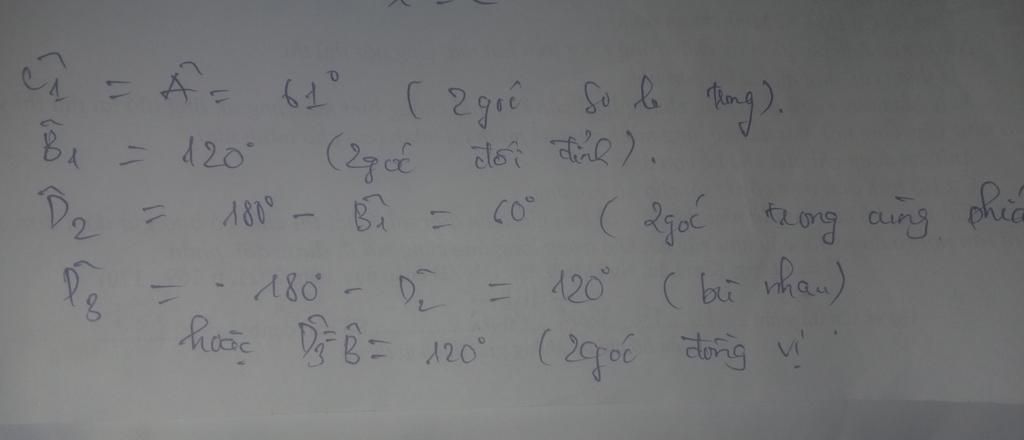 Ĉ1 = Â = 61° (2góc so le trong).
B̂1 = 120° (2góc đối đỉnh).
D̂2 = 180° - B̂1 = 60° (2góc trong cùng phía
D̂3 = - 180° - D̂2 = 120° (bù nhau)
hoặc D̂3 = B̂ = 120° (2góc đồng vị